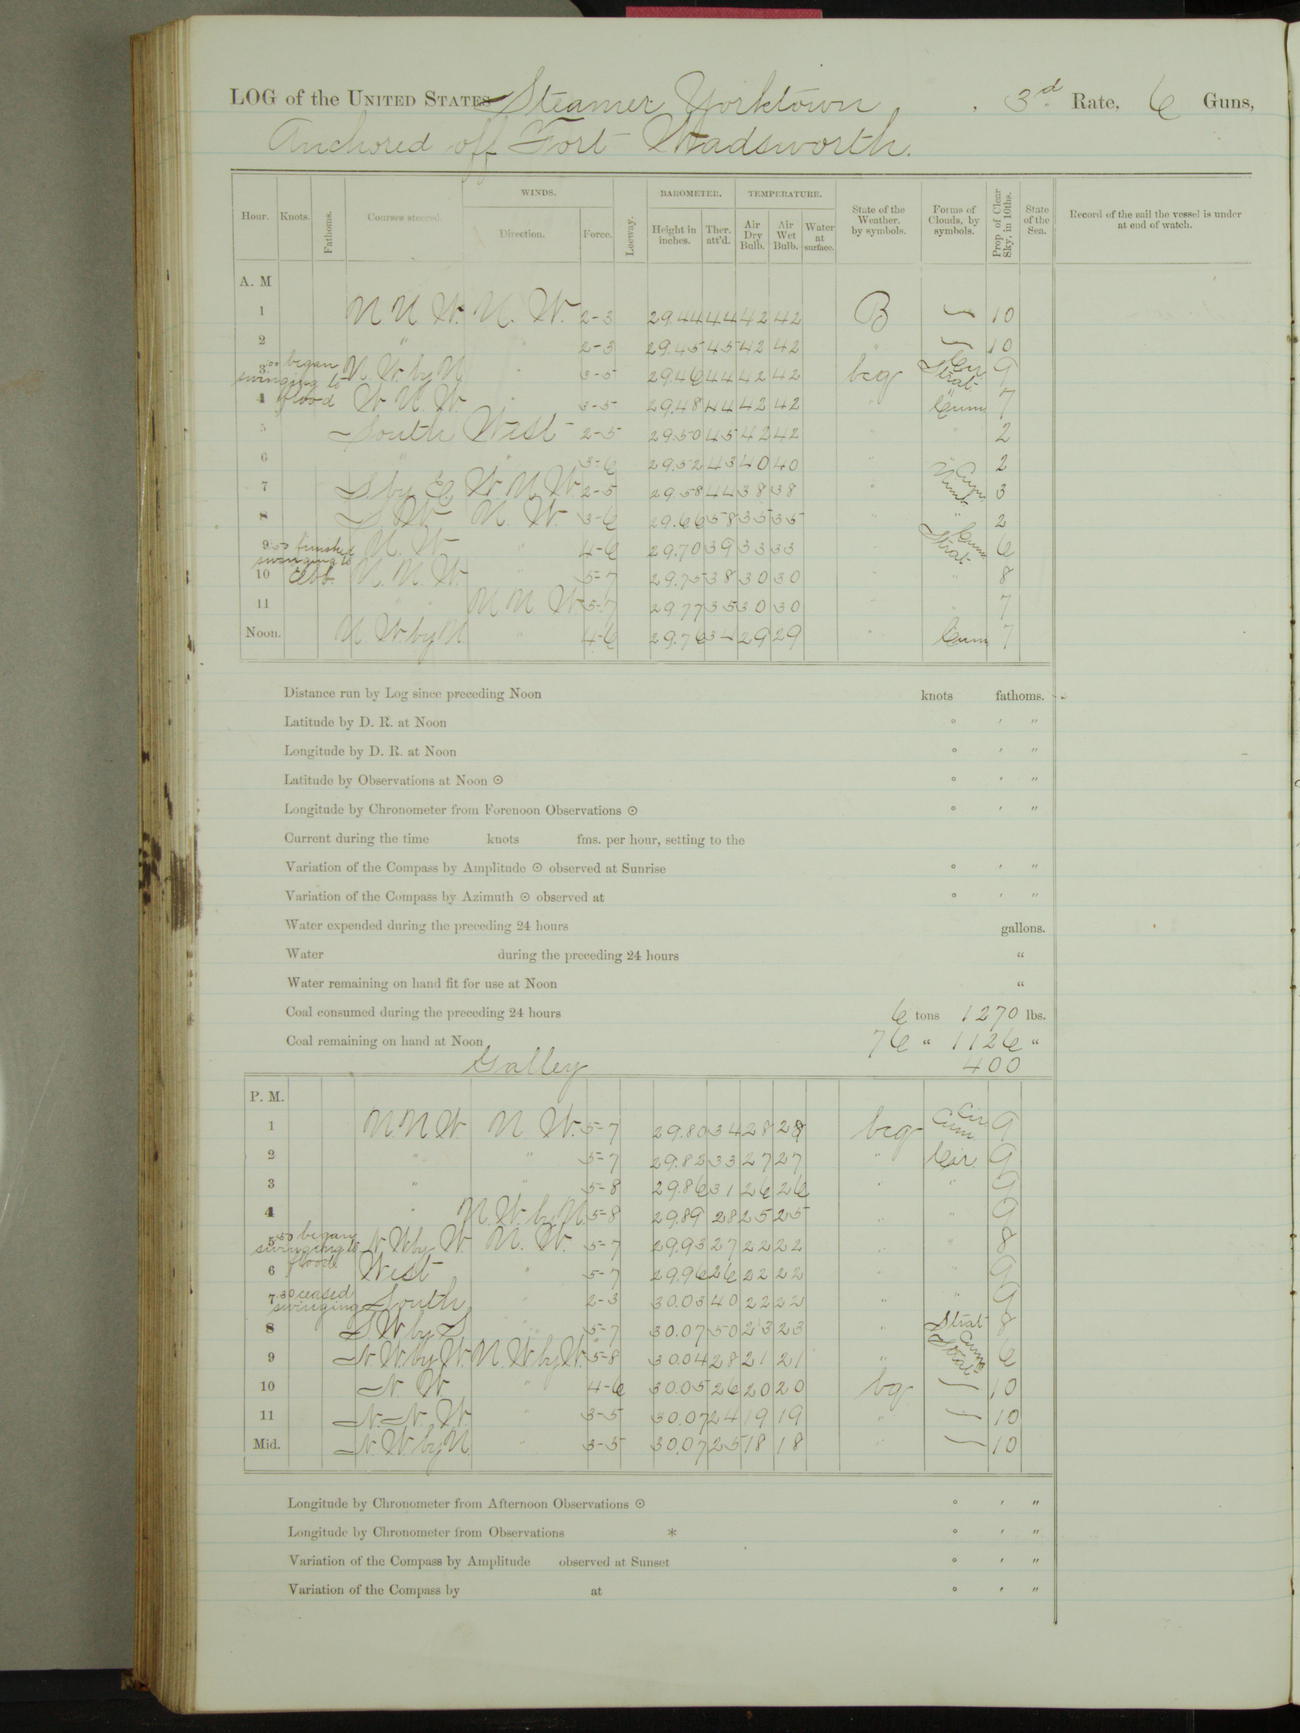 LOG of the UNITED STATES Steamer Yorktown, 3d Rate, 6 Guns,
Anchored off Fort Wadsworth.
WINDS. BAROMETER. TEMPERATURE.
Hour. Knots. Fathoms. Courses steered. Direction. Force. Leeway. Height in inches. Ther. att'd. Air Dry Bulb. Air Wet Bulb. Water at surface. State of the Weather, by symbols. Forms of Clouds, by symbols. Prop. of Clear Sky, in 10ths. State of the Sea. Record of the sail the vessel is under at end of watch.
A. M
1 N N W. N. W. 2-3 29.44 44 42 42 B 10
2 " 2-3 29.45 45 42 42 " 10
3 began swinging to flood N. W. by N " 3-5 29.46 44 42 42 bcg Cir. Strat. 9
4 W N. W. " 3-5 29.48 44 42 42 " Cum 7
5 South West 2-5 29.50 45 42 42 " " 2
6 " " 3-6 29.52 43 40 40 " 2
7 S by E W N W. 2-5 29.58 44 38 38 " Cum. Nimb 3
8 S. W. N. W. 3-6 29.66 58 35 35 " " 2
9 50 finished swinging to Ebb. N. W. " 4-6 29.70 39 33 33 " Cum Strat 6
10 N. N. W. " 5-7 29.75 38 30 30 " " 8
11 " N N W 5-7 29.77 35 30 30 " " 7
Noon. N. W. by N " 4-6 29.76 29 29 " Cum 7
Distance run by Log since preceding Noon knots fathoms.
Latitude by D. R. at Noon ° ′ ″
Longitude by D. R. at Noon ° ′ ″
Latitude by Observations at Noon ☉ ° ′ ″
Longitude by Chronometer from Forenoon Observations ☉ ° ′ ″
Current during the time knots fms. per hour, setting to the
Variation of the Compass by Amplitude ☉ observed at Sunrise ° ′ ″
Variation of the Compass by Azimuth ☉ observed at ° ′ ″
Water expended during the preceding 24 hours gallons.
Water during the preceding 24 hours "
Water remaining on hand fit for use at Noon "
Coal consumed during the preceding 24 hours 6 tons 1270 lbs.
Coal remaining on hand at Noon 76 " 1126 "
Galley 400
P. M.
1 N N W. N. W. 5-7 29.80 34 28 28 bcg Cir Cum 9
2 " " 5-7 29.82 33 27 27 " Cir. 9
3 " " 5-8 29.86 31 26 26 " " 9
4 " N. W. by N 5-8 29.89 28 25 25 " " 9
5 50 began swinging to flood N. W by W. N. W. 5-7 29.93 27 22 22 " " 8
6 West " 5-7 29.96 26 22 22 " " 9
7 30 ceased swinging South " 2-3 30.03 40 22 22 " " 9
8 S W by S " 5-7 30.07 50 23 23 " Strat 8
9 N. W. by W. N. W by W. 5-8 30.04 28 21 21 " Cum Strat 6
10 N. W. " 4-6 30.05 26 20 20 bg 10
11 N. N. W. " 3-5 30.07 24 19 19 " 10
Mid. N. W by N " 3-5 30.07 25 18 18 " 10
Longitude by Chronometer from Afternoon Observations ☉ ° ′ ″
Longitude by Chronometer from Observations * ° ′ ″
Variation of the Compass by Amplitude observed at Sunset ° ′ ″
Variation of the Compass by at ° ′ ″